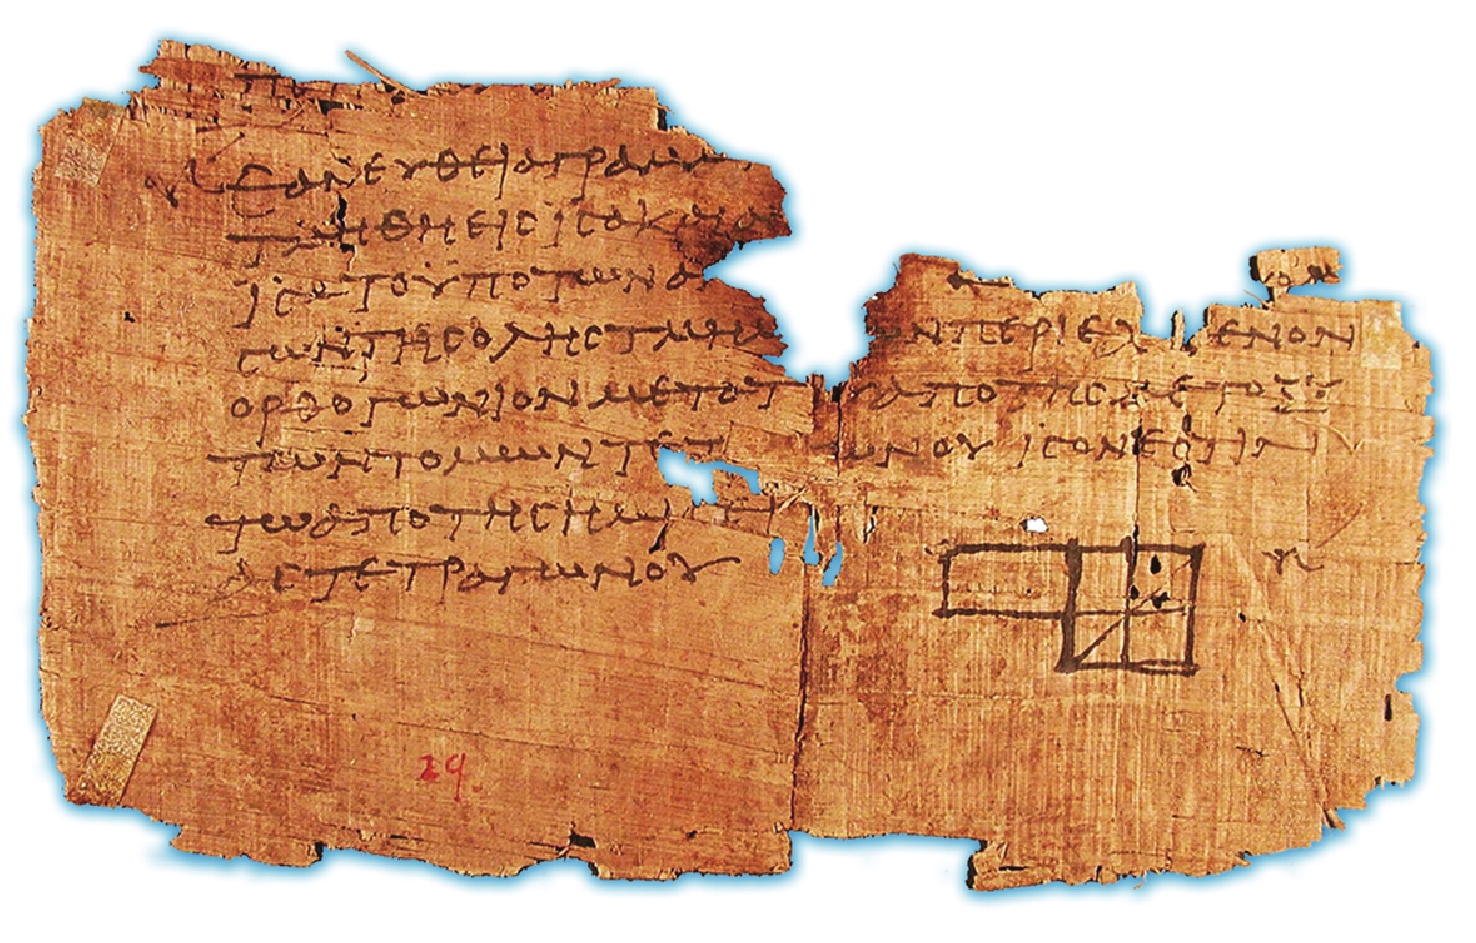 ΕΑΝΕΥΘΕΙΑΓΡΑΜΜ
ΤΜΗΘΗΕΙϹΙϹΑΚΑΙΑ
ΙϹΑΤΟΥΠΟΤΩΝΑ
ϹΩΝΤΗϹΟΛΗϹΤΜΗΜ ΩΝΠΕΡΙΕΧ ΕΝΟΝ
ΟΡΘΟΓΩΝΙΟΝΜΕΤΑΤ ΥΑΠΟΤΗϹΜΕΤΟΞΥ
ΤΩΝΤΟΜΩΝΤΕΤ ΩΝΟΥ ΙϹΟΝΕϹΤΙΝ
ΤΩΑΠΟΤΗϹΗΜΙ
ΑϹΤΕΤΡΑΓΩΝΟΥ
29